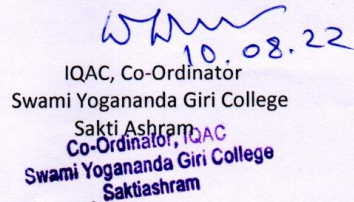 10.08.22
IQAC, Co-Ordinator
Swami Yogananda Giri College
Sakti Ashram
Co-Ordinator, IQAC
Swami Yogananda Giri College
Saktiashram